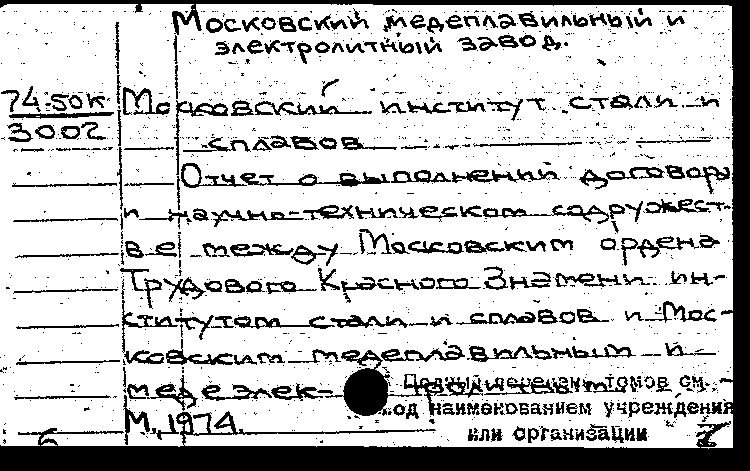 Московский медеплавильный и
электролитный завод.
74-50к
3002
Московский институт стали и
сплавов
Отчет о выполнении договора
и научно-техническом содружест-
ве между Московским ордена
Трудового Красного Знамени ин-
ститутом стали и сплавов и Мос-
ковским медеплавильным и
медеэлек-
М., 1974.
Полный перечень томов см.
под наименованием учреждения
или организации